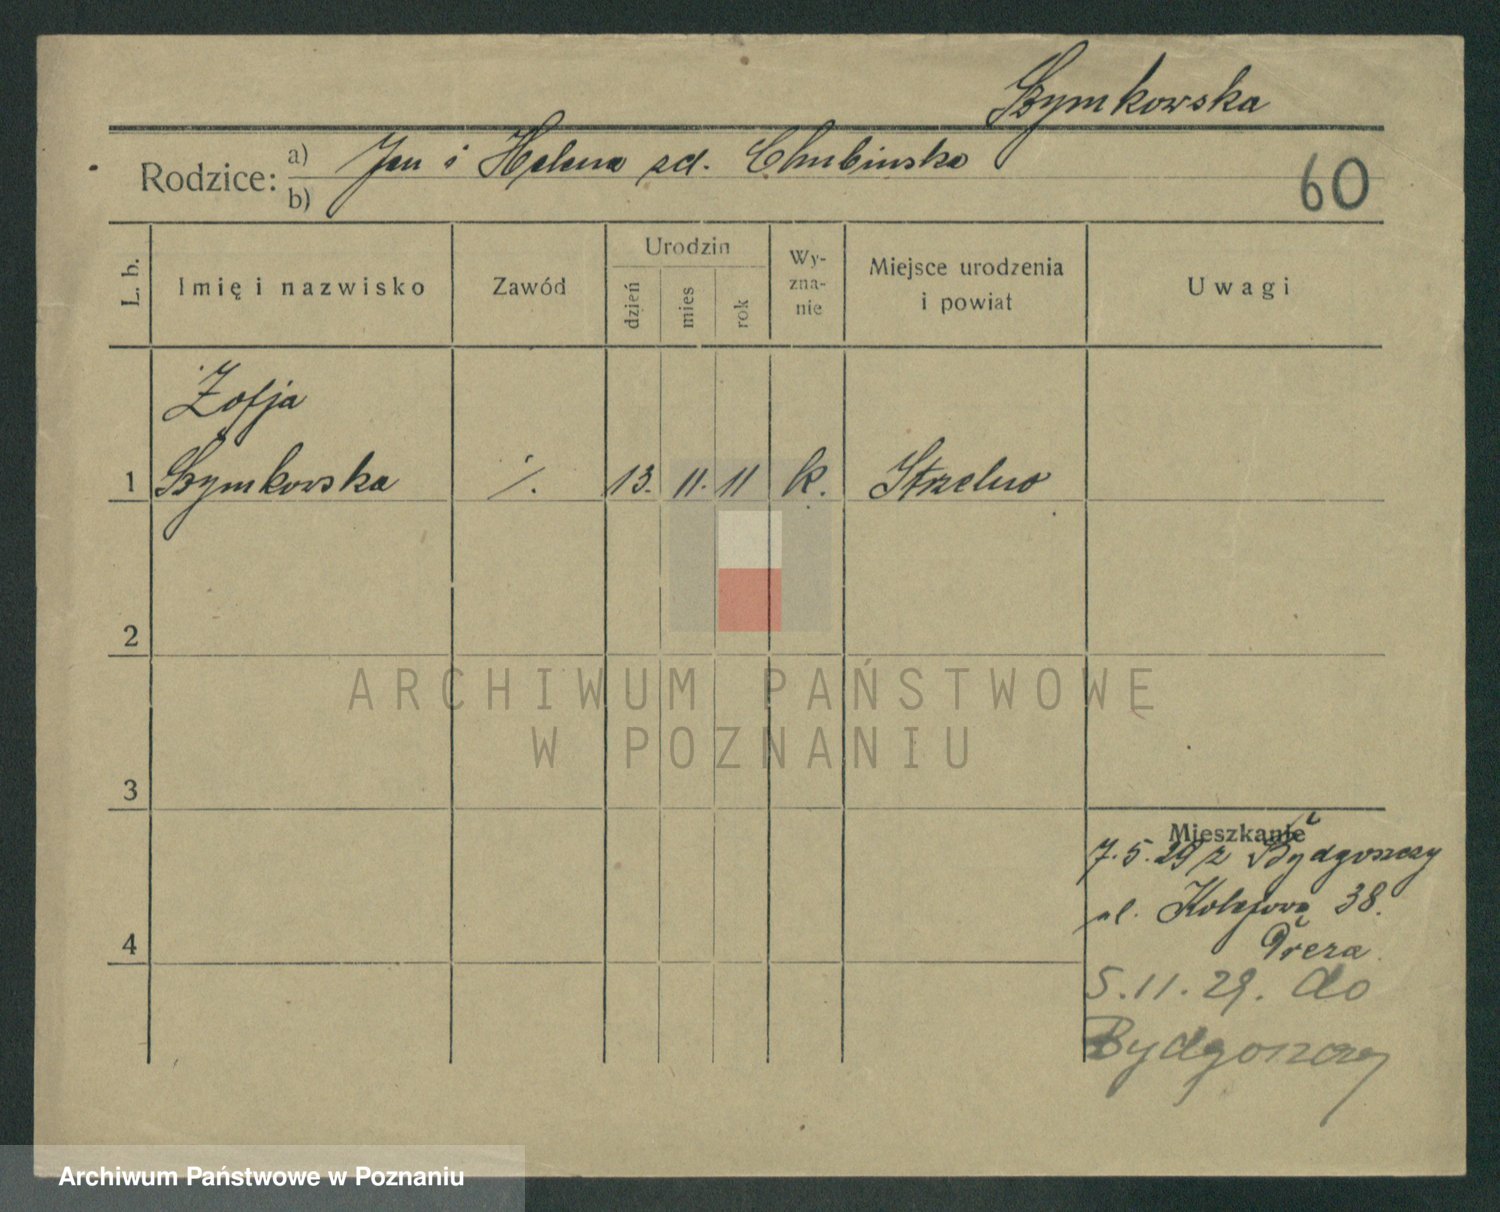 Szymkowska
Rodzice: a) Jan i Helena zd. Chubinska
b)
60
L. b.
Imię i nazwisko
Zawód
Urodzin
dzień
mies
rok
Wy-
zna-
nie
Miejsce urodzenia
i powiat
Uwagi
Zofja
1 Szymkowska ·/. 13. 11. 11 k. Strzelno
2
ARCHIWUM PAŃSTWOWE
W POZNANIU
3
Mieszkanie
7.5.29 z Bydgoszczy
ul. Kolejowa 38.
4
5.11.29. do
Bydgoszczy
Archiwum Państwowe w Poznaniu